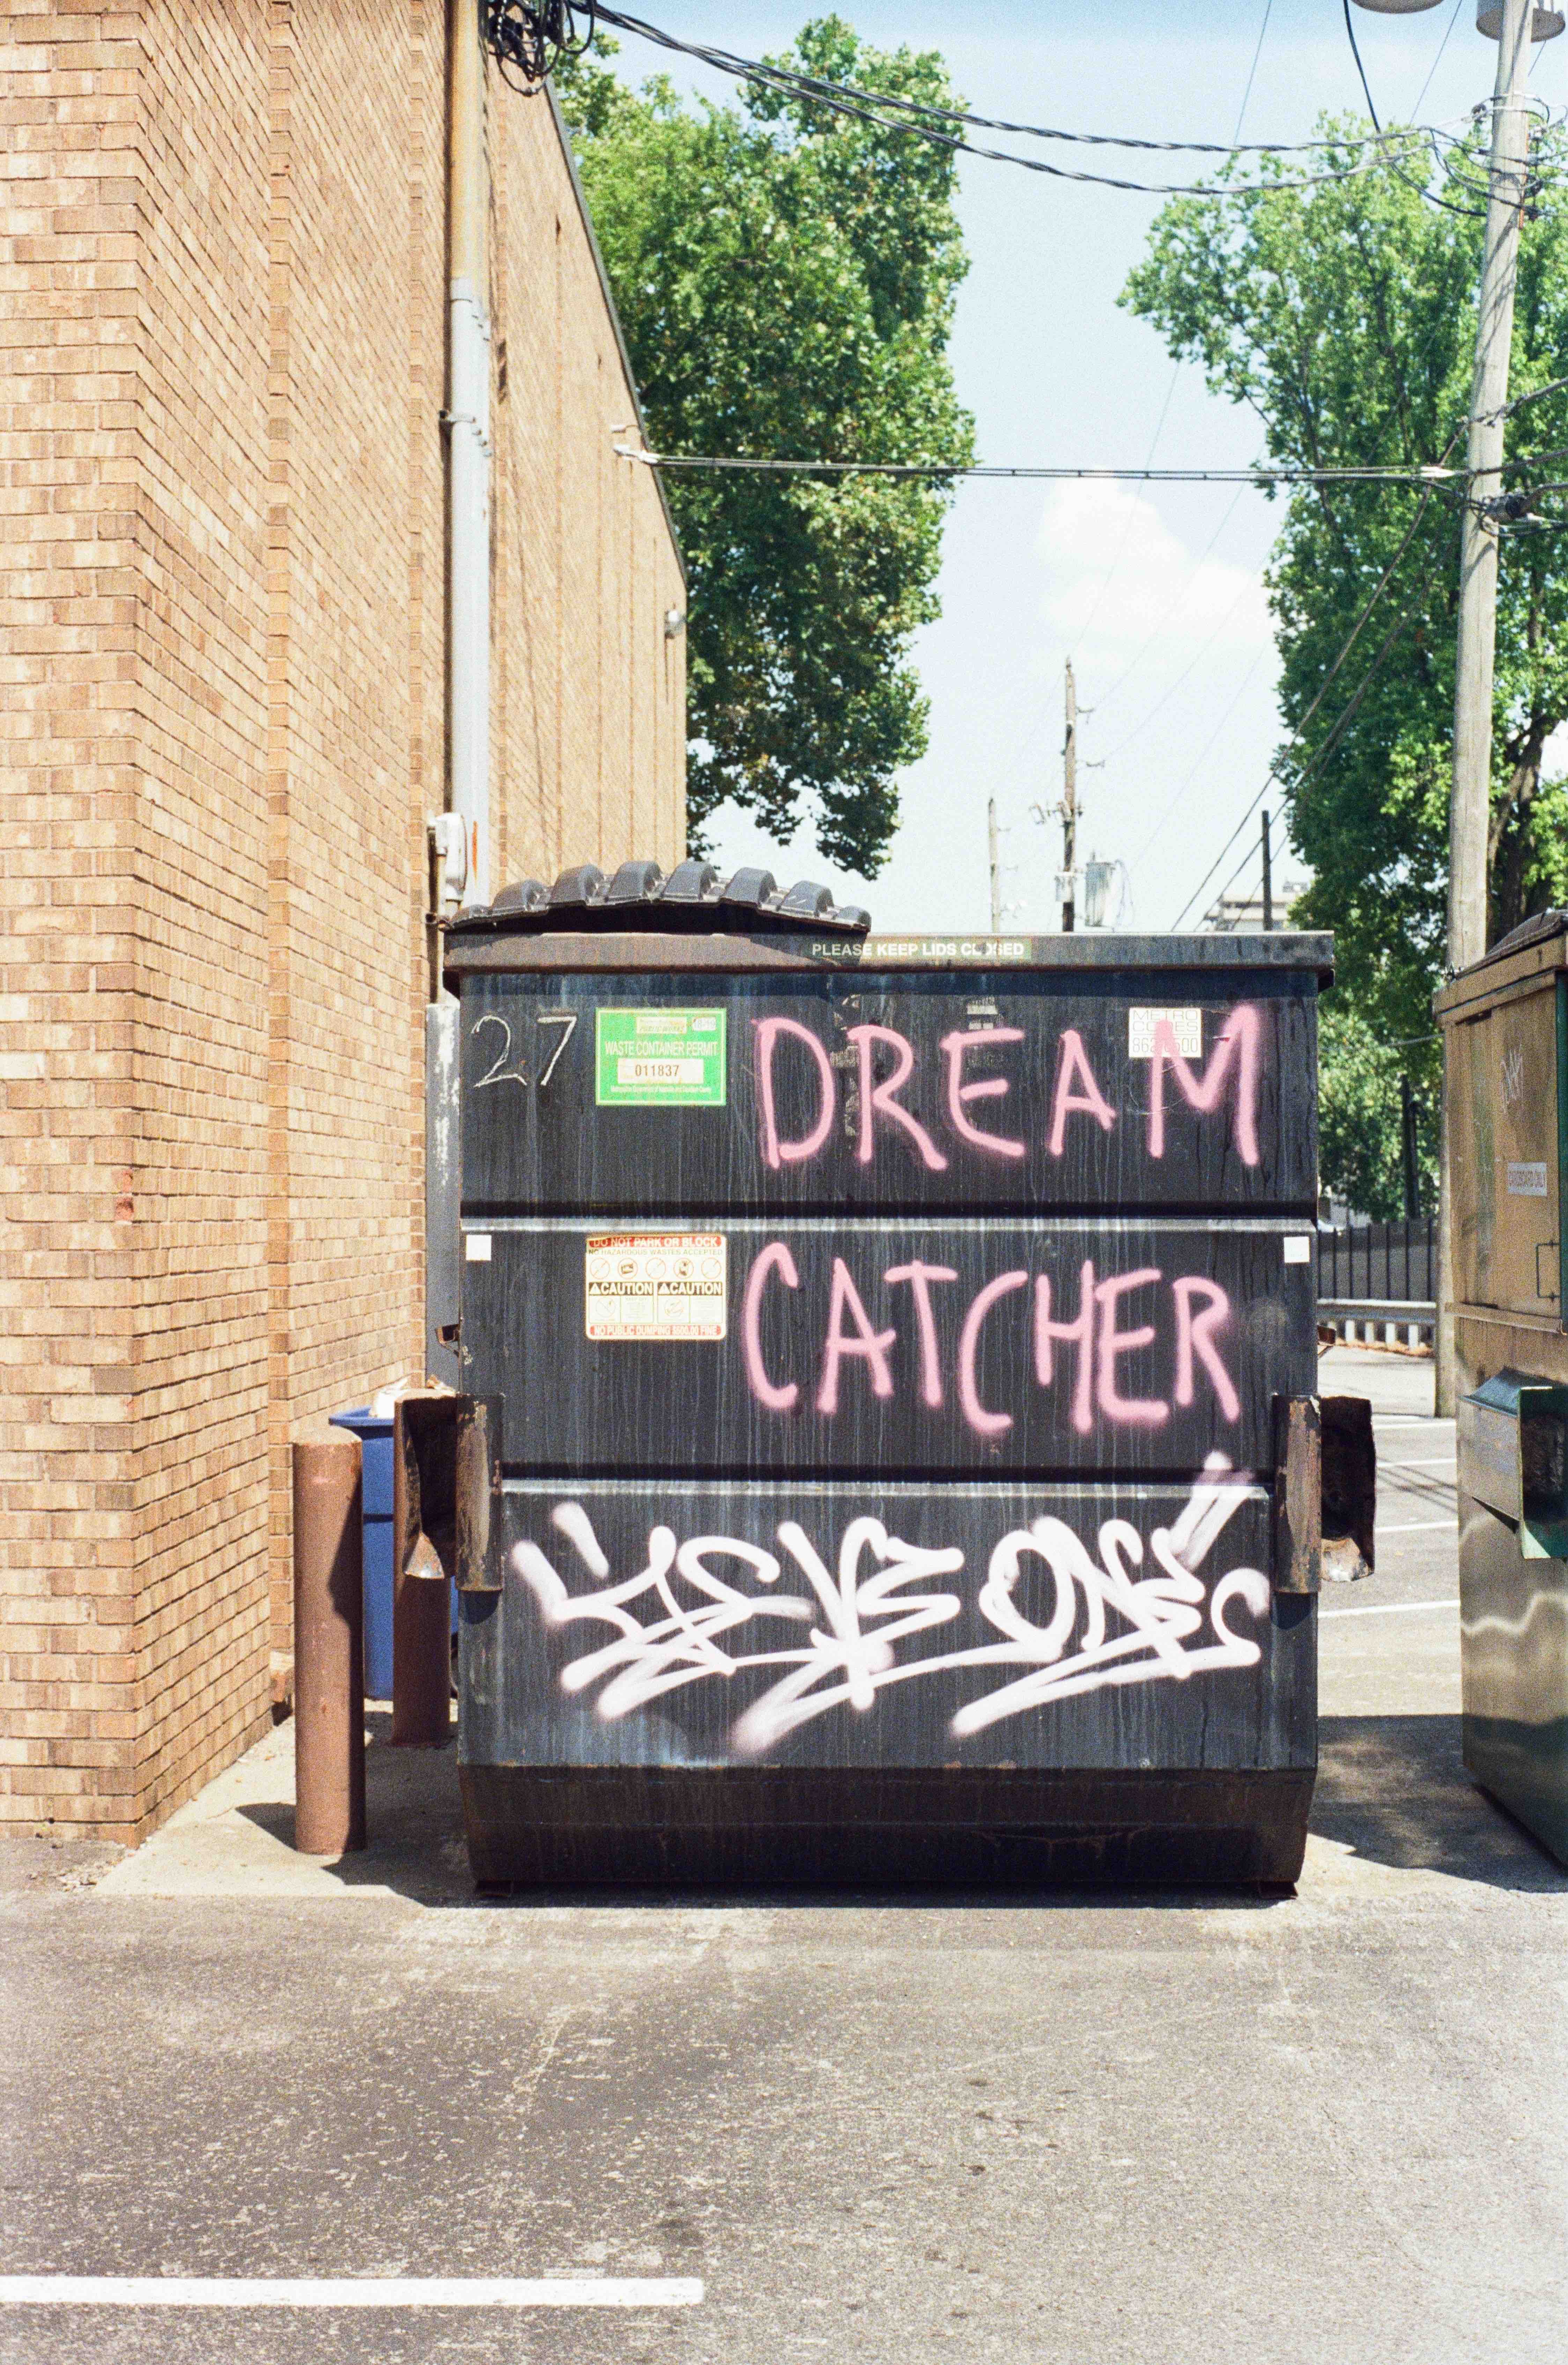 PLEASE KEEP LIDS CLOSED
27
WASTE CONTAINER PERMIT
011837
DREAM
METRO
CODES
DO NOT PARK OR BLOCK
NO HAZARDOUS WASTES ACCEPTED
CAUTION CAUTION
NO PUBLIC DUMPING $500.00 FINE
CATCHER
ONE
CARDBOARD ONLY